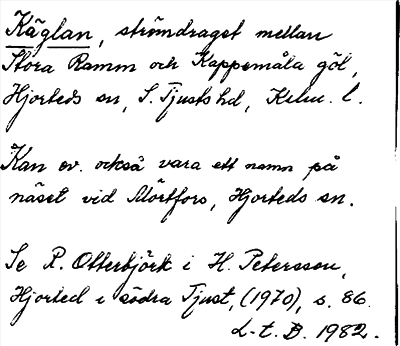 Käglan, strömdraget mellan
Stora Ramm och Kappemåla göl,
Hjorteds sn, S. Tjusts hd, Kalm. l.
Kan ev. också vara ett namn på
näset vid Mörtfors, Hjorteds sn.
Se R. Otterbjörk i H. Petersson,
Hjorted i södra Tjust, (1970), s. 86.
L-t. B. 1982.